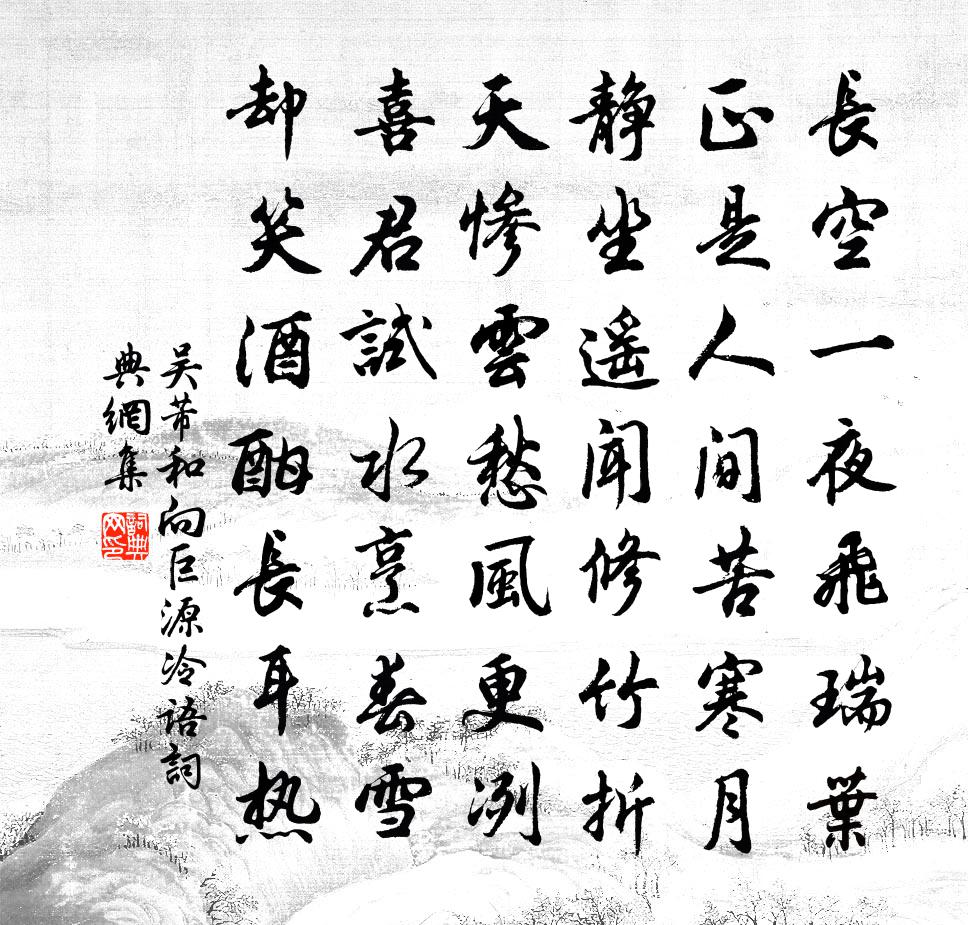 長空一夜飛瑞葉
正是人間苦寒月
靜坐遥聞修竹折
天慘雲愁風更冽
喜君試水烹春雪
却笑酒酣長耳热
吴芾和向巨源冷語詞
典網集
詞典网印